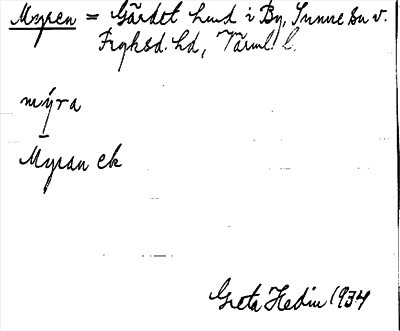 Myren = Gärdet hmd i By, Sunne sn v.
Fryksd. hd, Värml. l.
mýra
Myran ek
Greta Hedin 1934